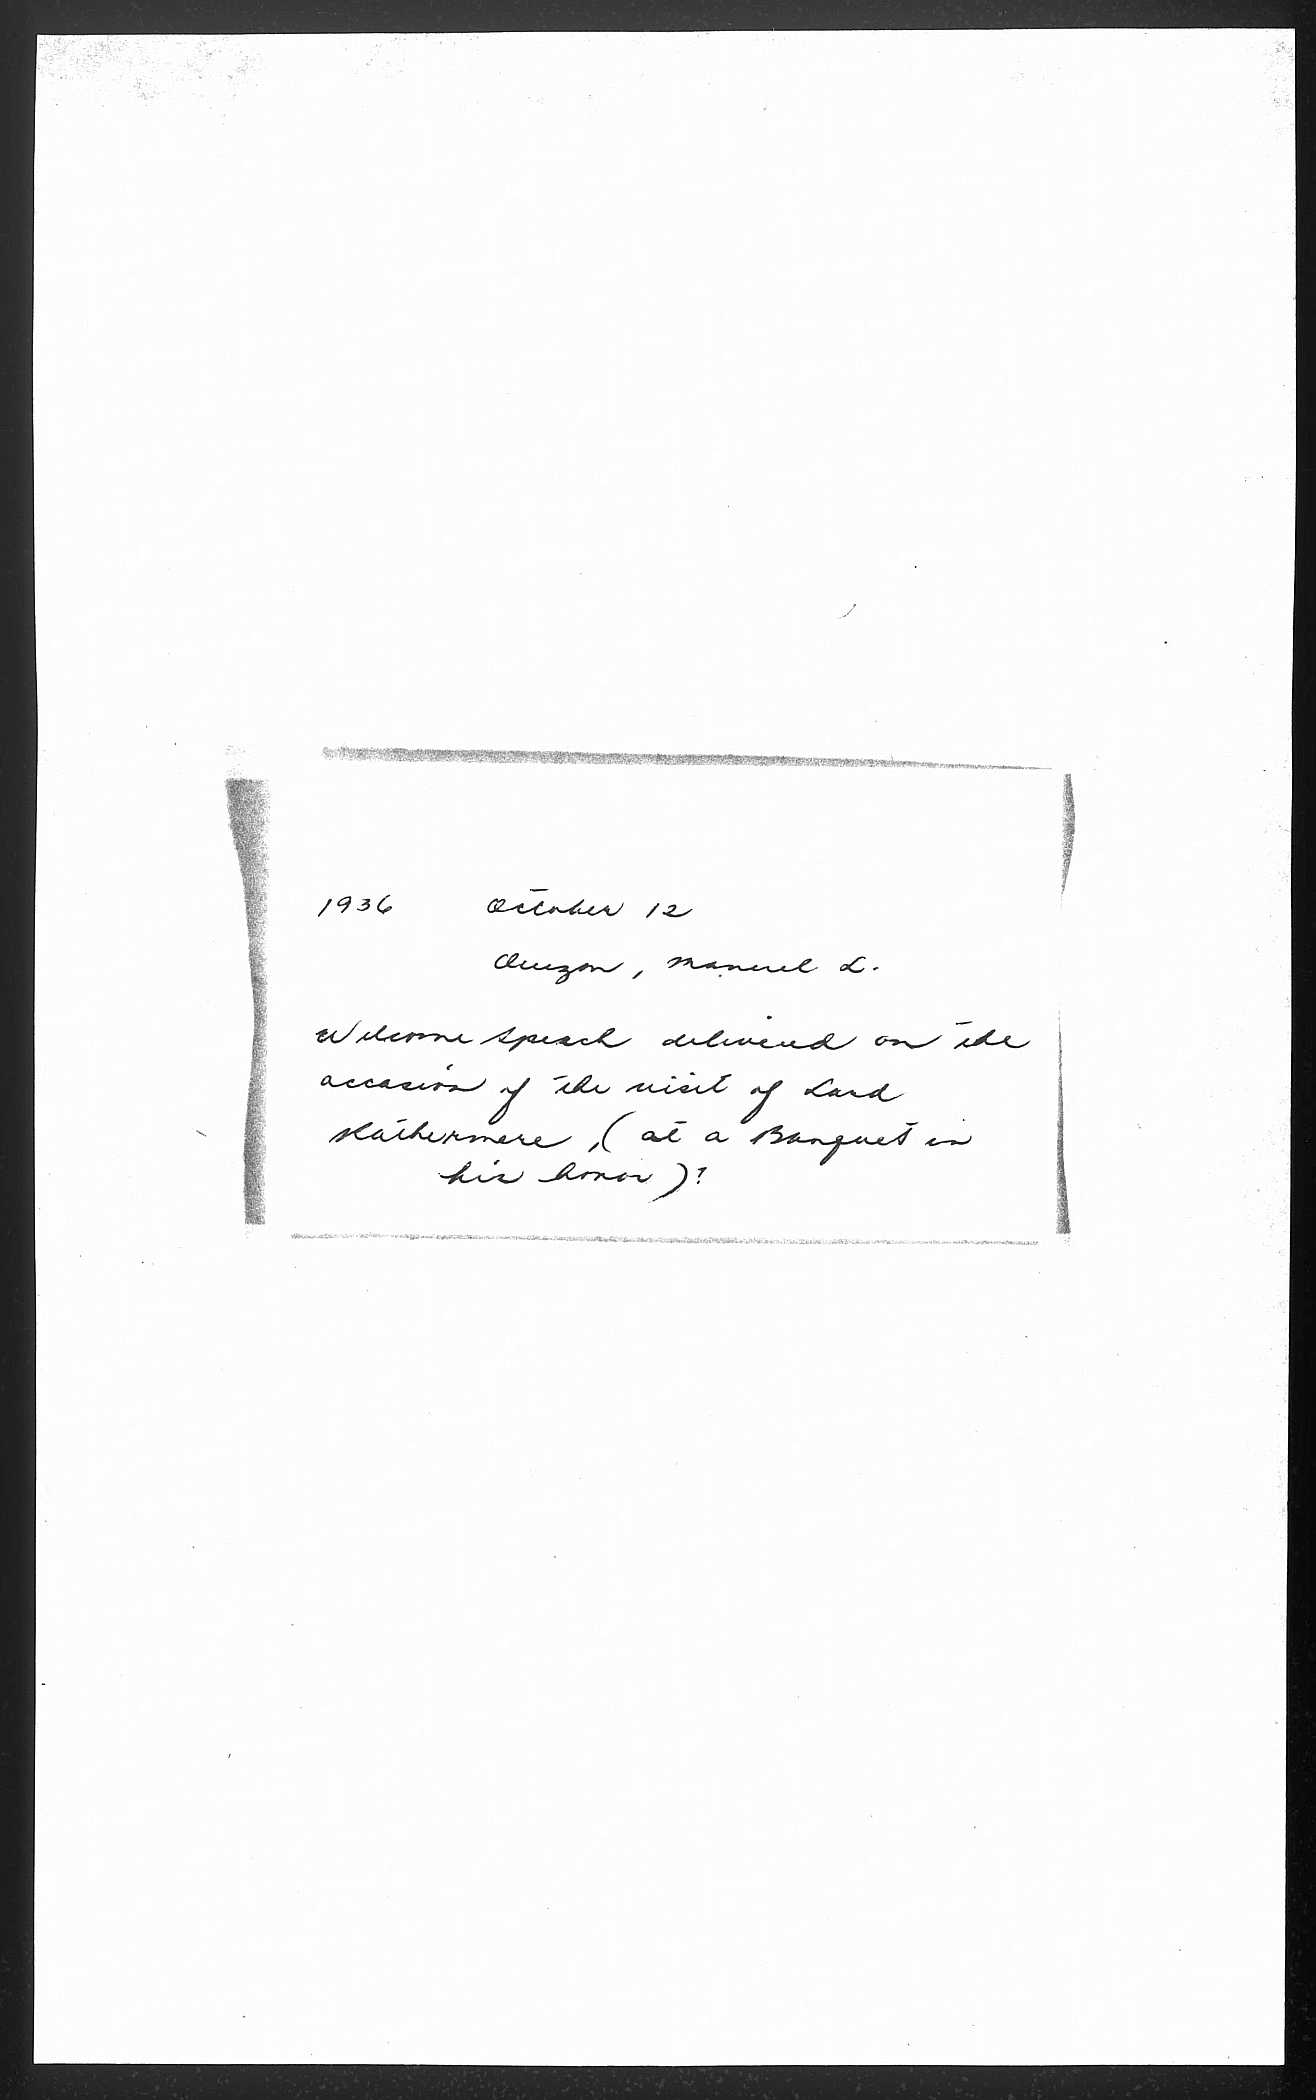 1936 October 12
Quezon, Manuel L.
Welcome speech delivered on the
occasion of the visit of Lord
Rothermere, (at a Banquet in
his honor)?